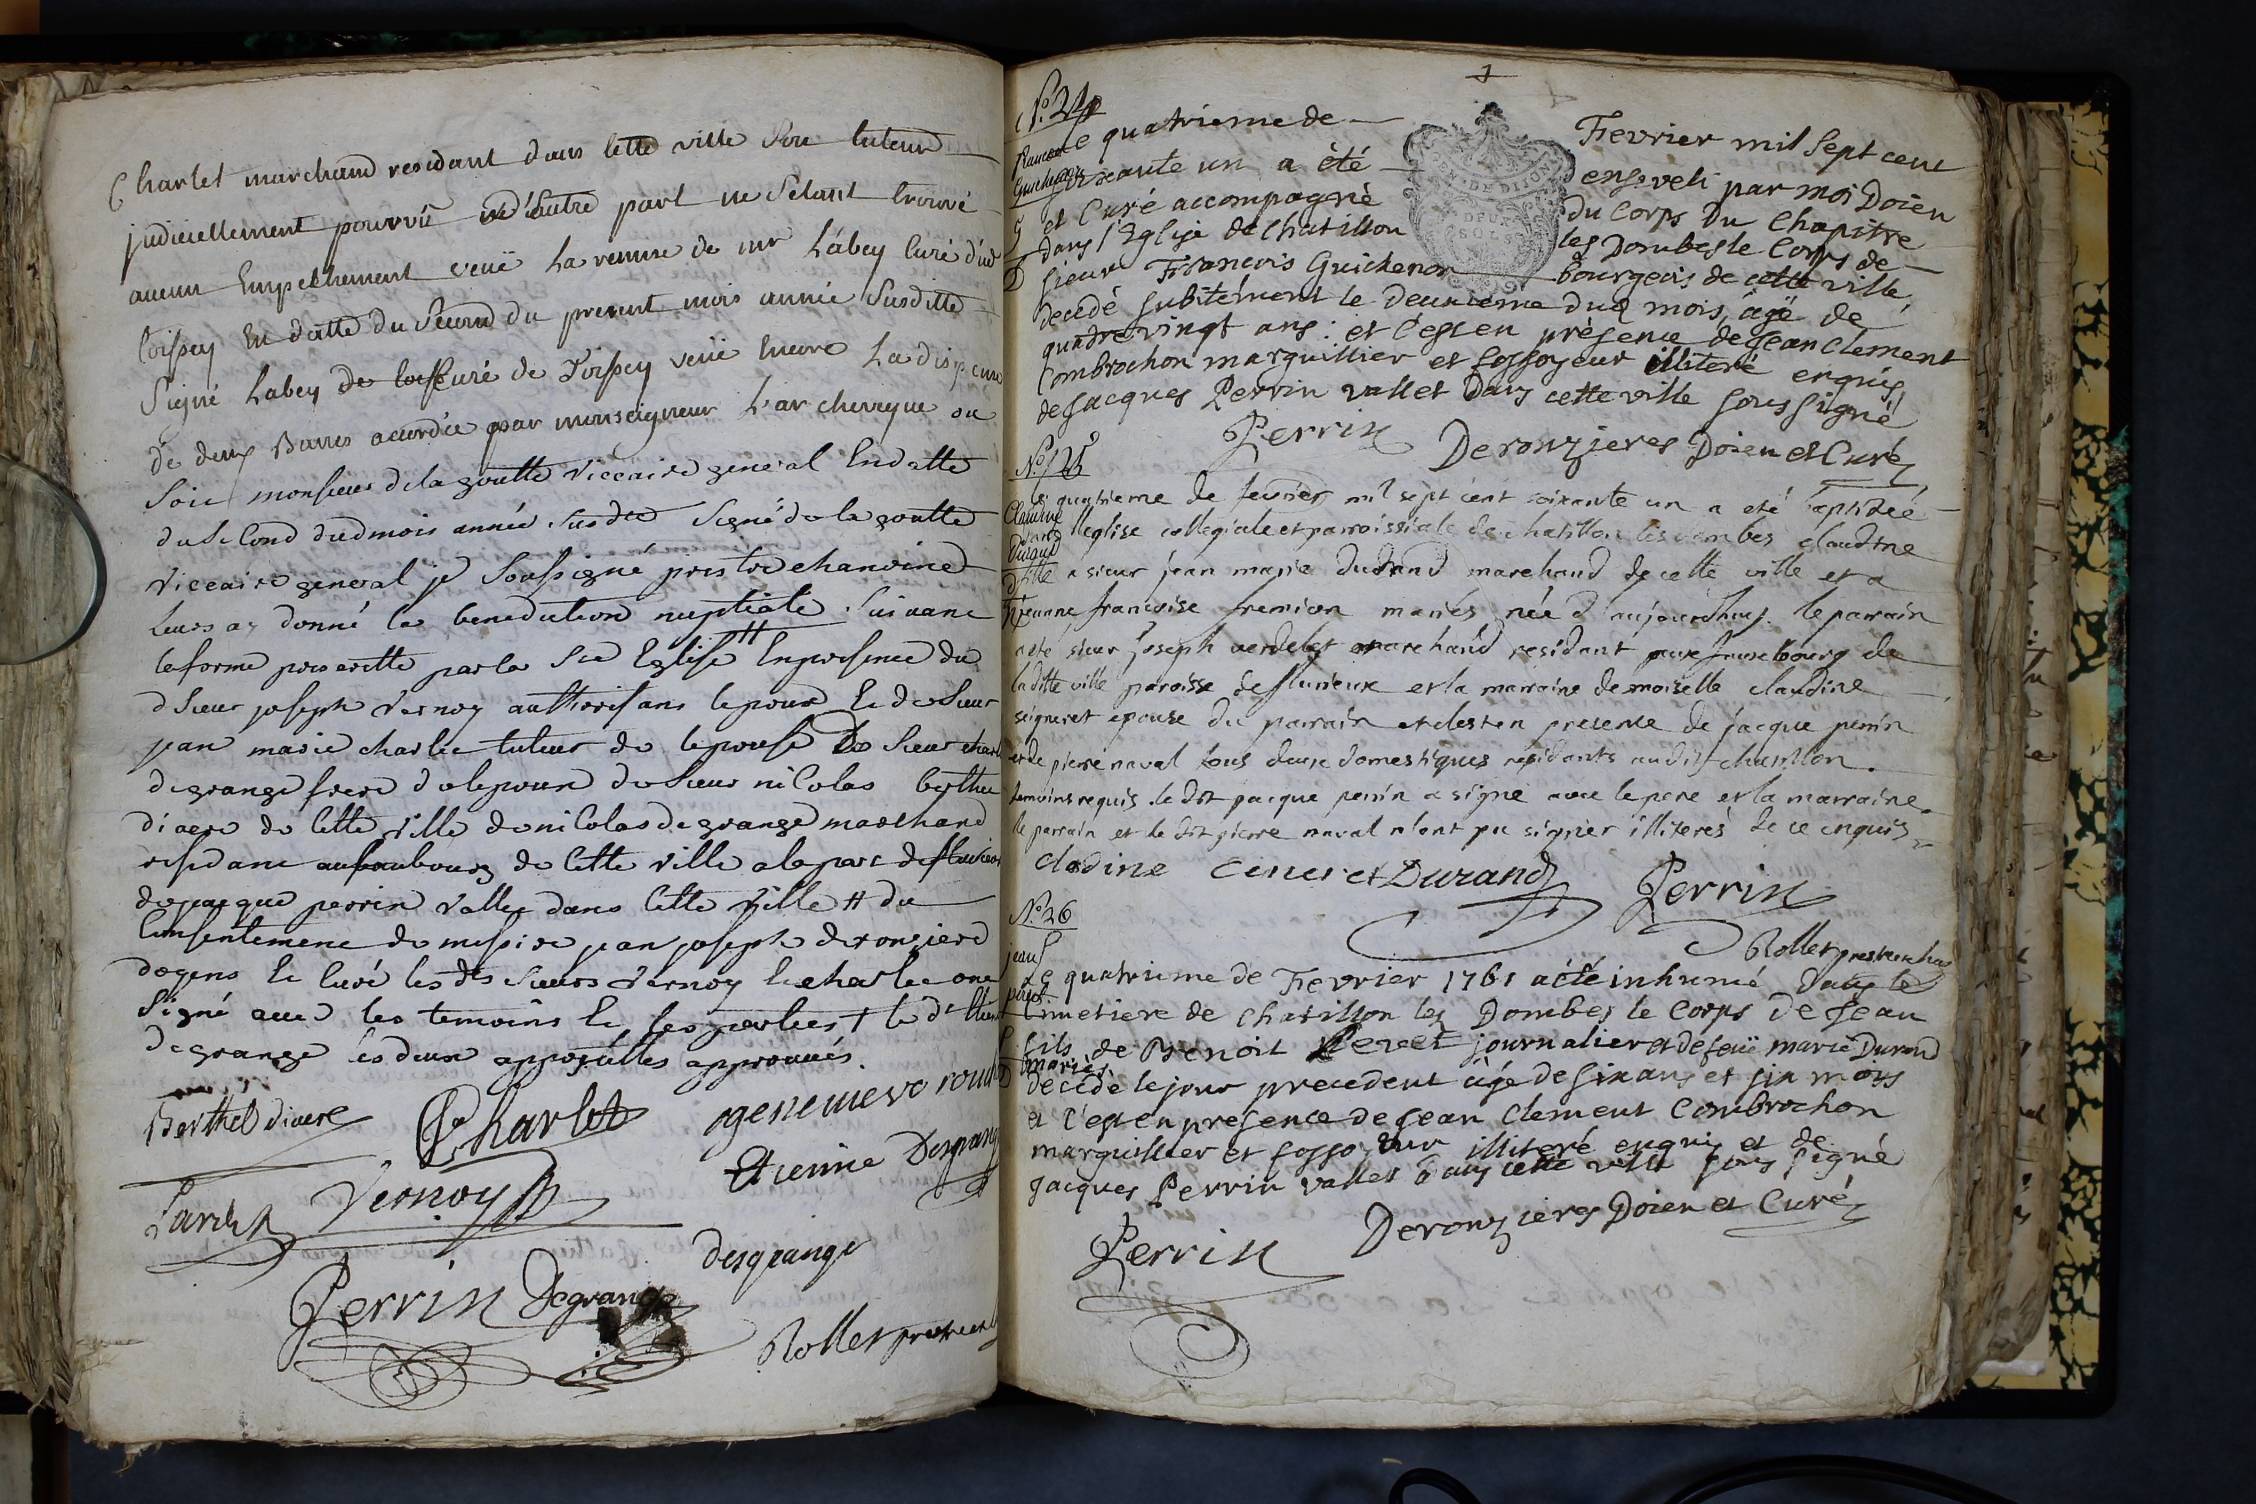 Charlet marchand residant dans cette ville Son tuteur
judiciellement pourvû et d'autre part ne S'etant trouvé
aucun Empechement veüe La remise de mr L'abey Curé dud
Toissey En datte du Second du present mois année Susditte
Signé Labey Curé de Toissey veüe Encore La dispense
de deux Bancs acordée par monseigneur L'archeveque ou
Soit monsieur de la goutte viccaire general En datte
du Second dud mois année Susdte Signé de la goutte
viccaire general je Soussigné prestre chanoine
Leurs ay donné la benediction nuptiale Suivant
la forme prescritte par la Ste Eglise # En presence du
d Sieur joseph Vernoy authorisant lepoux Et du Sieur
jean marie charlet tuteur de lepouse De Sieur
degrange frere de lepoux du Sieur nicolas berthel
diacre de Cette ville de nicolas degrange marchand
residant au faubourg de Cette ville a la par de flurieux
de jacque perrin Vallet dans Cette Ville # du
Consentement de messire jean joseph deronziere
doyens Et Curé les dts Sieurs Vernoy Et charlet ont
Signé avec les temoins Et les parties † le dt
degrange les deux appostilles approuvés.
Berthel diacre Charlet genevieve
Etienne Desgrange
Vernoy
desgrange
Perrin Degrange
Rollet prestre
N.° 24
francois
Guichenon
Le quatrieme de Fevrier mil Sept cent
Soixante un a été enseveli par moi Doien
et Curé accompagné du Corps du Chapitre
dans l'Eglise de Chatillon les Dombes le Corps de
Sieur Francois Guichenon bourgeois de cette ville
decedé subitement le deuxieme dud mois, âgé de
quatre vingt ans : et c'est en présence de Jean Clement
Combrochon marguillier et fossoyeur illiteré enquis
de Jacques Perrin vallet dans cette ville soussigné
GEN. DE DIJON
DEUX
SOLS
Perrin Deronzieres Doien et Curé
N.° 25
Claudine
Durand
le quatrieme de fevrier mil sept cent soixante un a eté baptisée
dans l'eglise collegiale et parroissiale de chatillon les dombes claudine
fille a sieur jean marie Durand marchand de cette ville et a
jeanne françoise fremion mariés née d'aujourdhuy. le parrain
a été sieur joseph verdelet marchand residant au fauxbourg de
la ditte ville paroisse de flurieux et la marraine demoiselle claudine
seigneret epouse du parrain et c'est en presence de jacque perrin
et de pierre naval tous deux domestiques residants audit chatillon.
temoins requis. le dit jacque perrin a signé avec le pere et la marraine.
le parrain et le dit pierre naval n'ont pu signer illiterés de ce enquis
clodine Cineret Durand Perrin
Rollet prestre
N.° 26
jean
Le quatrieme de Fevrier 1761 a été inhumé dans le
Cimetiere de Chatillon les Dombes le Corps de Jean
fils de Benoit Pevet journalier et de feüe marie Durand
mariés,
décédé le jour precedent âgé de six ans et six mois
et c'est en presence de Jean Clement Combrochon
marguillier et fossoyeur illiteré enquis et de
Jacques Perrin vallet dans cette ville soussigné
Perrin Deronzieres Doien et Curé